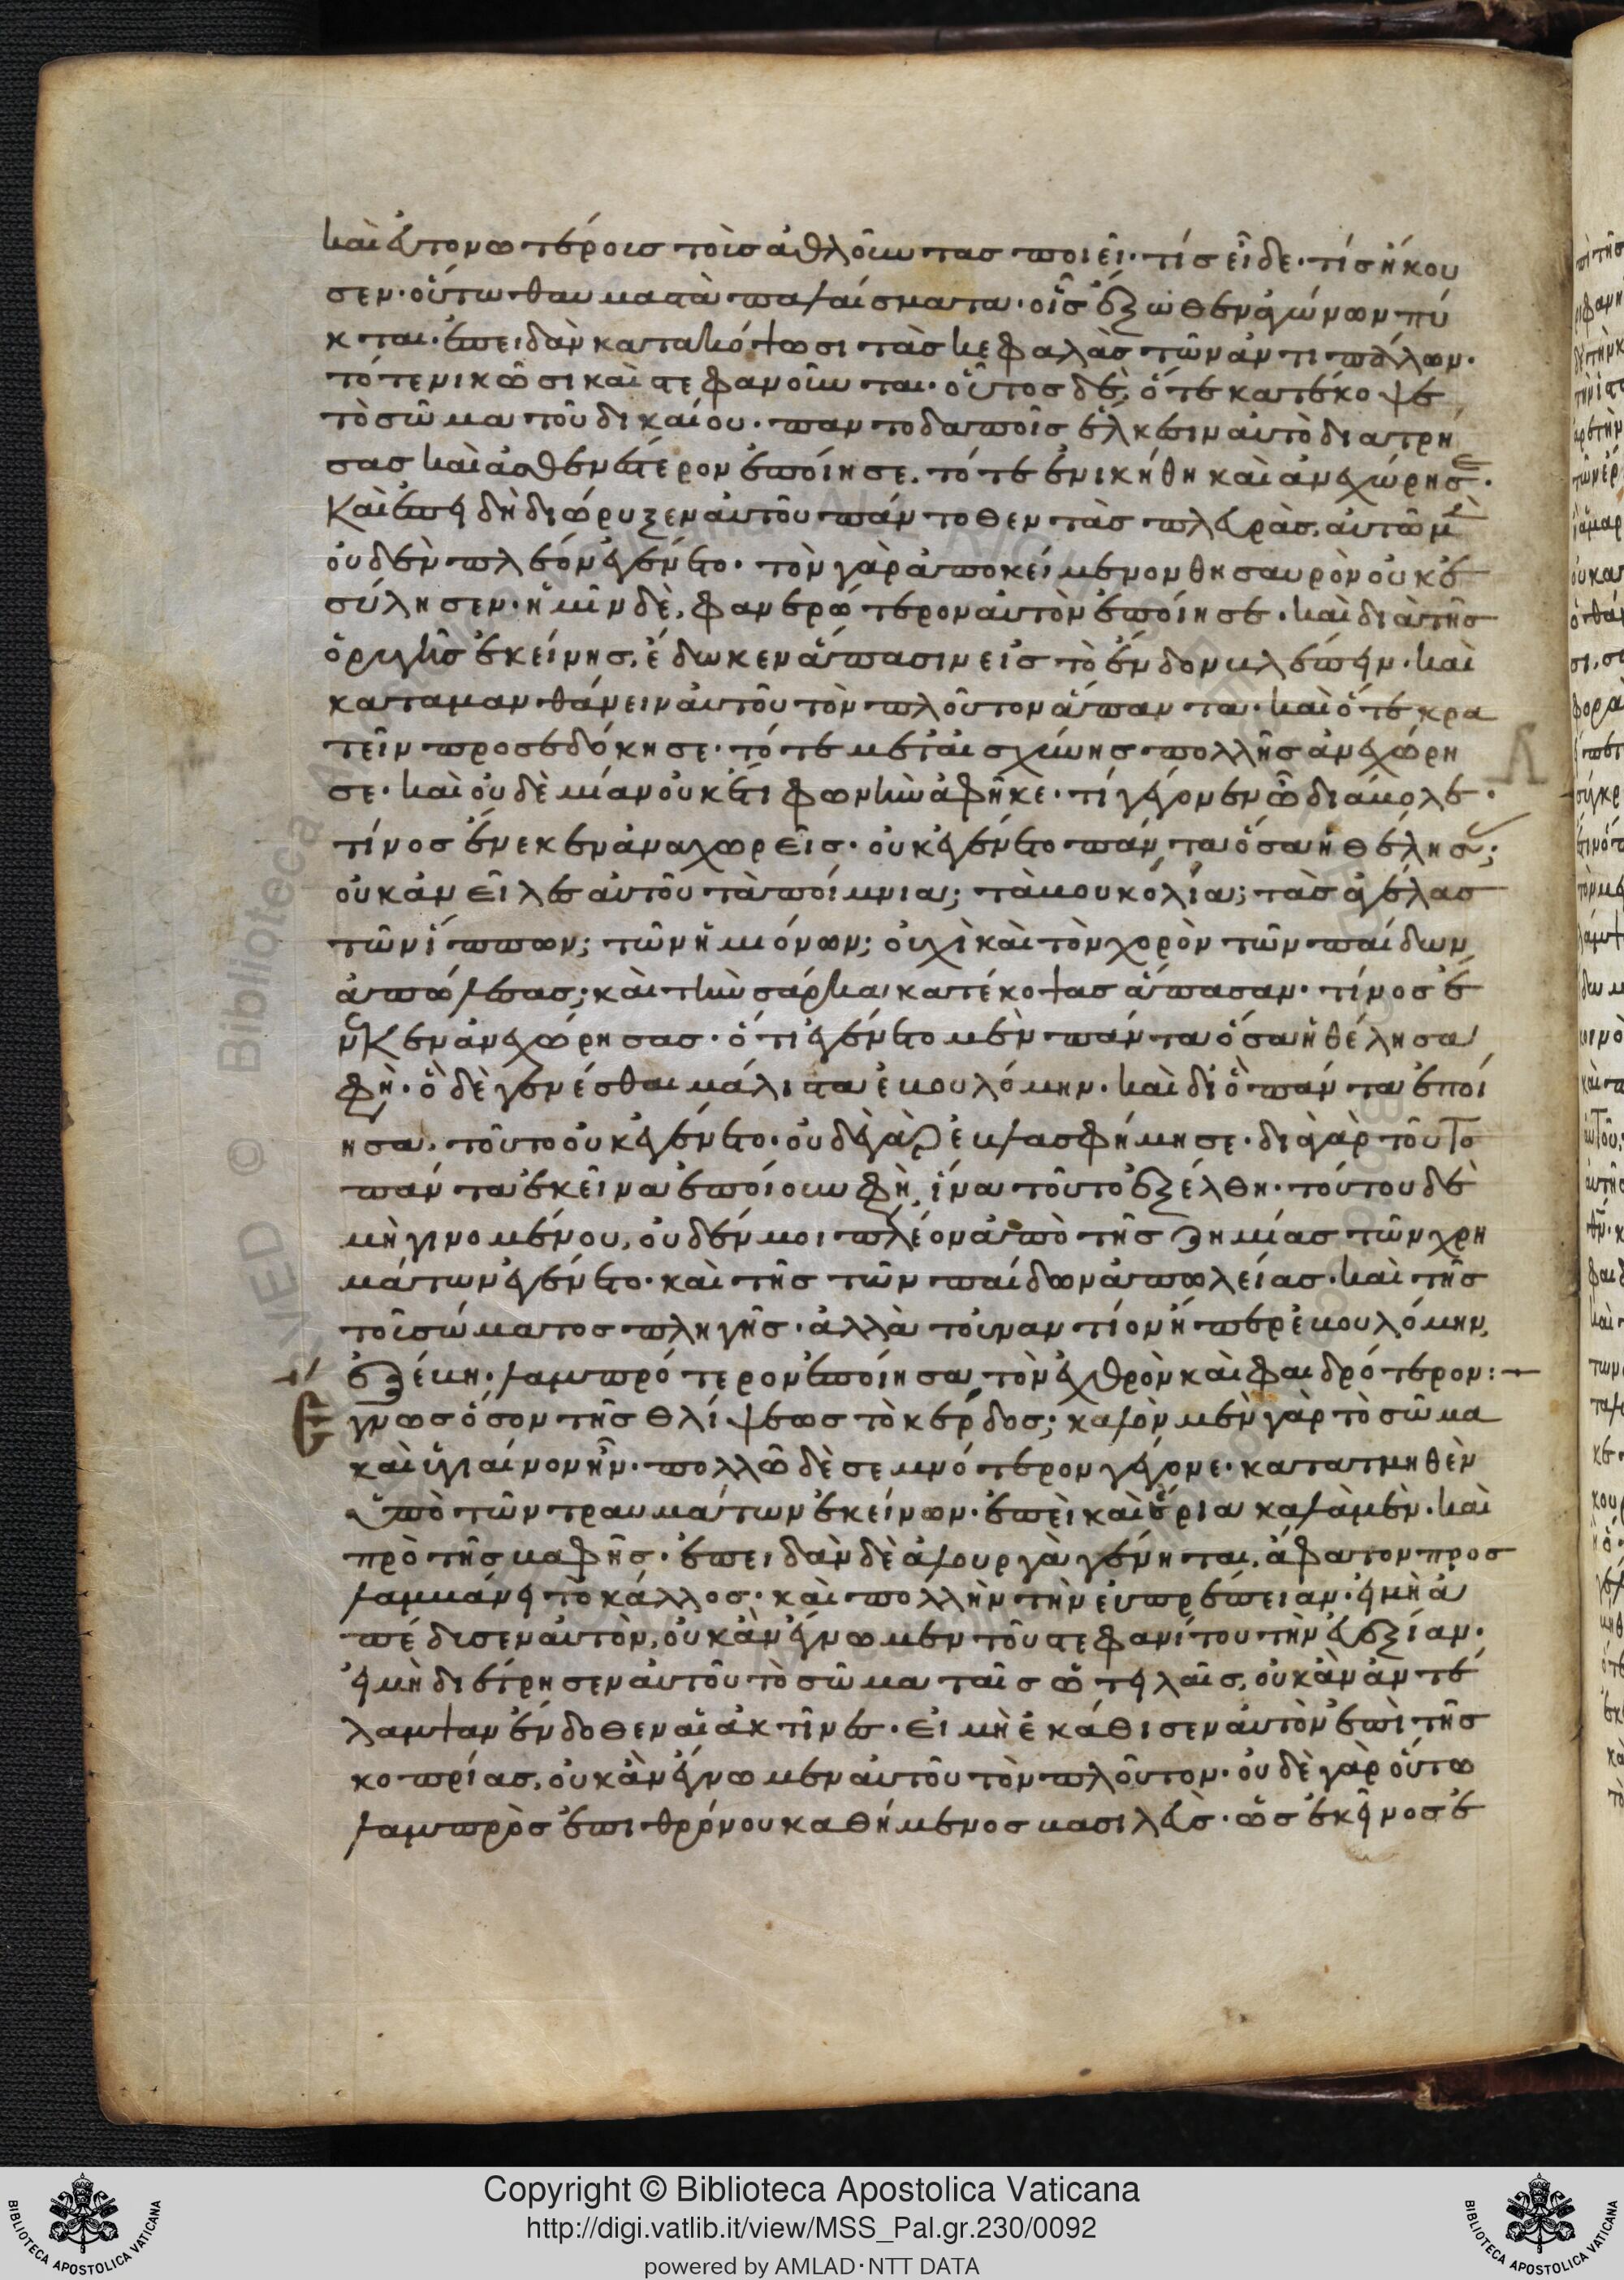 καὶ εὐτονωτέροις τοῖς ἀθλοῦντας ποιεῖ· τίς εἶδε· τίς ἤκου
σεν· οὕτω θαυμαστὰ παλαίσματα· οἷς ἔξωθεν ἀγώνων πύ
κται· ἐπειδὰν κατακόψωσι τὰς κεφαλὰς τῶν ἀντιπάλων·
τότε νικῶσι καὶ στεφανοῦνται· οὗτος δὲ, ὅτε κατέκοψε
τὸ σῶμα τοῦ δικαίου· παντοδαποῖς ἕλκεσιν αὐτὸ διατρή
σας καὶ ἀσθενέστερον ἐποίησε. τότε ἐνικήθη καὶ ἀνεχώρησε·
Καὶ ἐπειδὴ διώρυξεν αὐτοῦ πάντοθεν τὰς πλευρὰς, αὐτῶ μὲν
οὐδὲν πλέον ἐγένετο· τὸν γὰρ ἀποκείμενον θησαυρὸν οὐκ ἐ
σύλησεν· ἡμῖν δὲ, φανερώτερον αὐτὸν ἐποίησε· καὶ διὰ τῆς
ὀρυγῆς ἐκείνης, ἔδωκεν ἅπασιν εἰς τὸ ἔνδον βλέπειν· καὶ
καταμανθάνειν αὐτοῦ τὸν πλοῦτον ἅπαντα· καὶ ὅτε κρα
τεῖν προσεδόκησε· τότε μετ᾽ αἰσχύνης πολλῆς ἀνεχώρη
σε· καὶ οὐδὲ μίαν οὐκ ἔτι φωνὴν ἀφῆκε· τί γέγονεν ὦ διάβολε·
τίνος ἕνεκεν ἀναχωρεῖς· οὐκ ἐγένετο πάντα ὅσα ἠθέλησας;
οὐκ ἀνεῖλες αὐτοῦ τὰ ποίμνια; τὰ βουκόλια; τὰς ἀγέλας
τῶν ἵππων; τῶν ἡμιόνων; οὐχὶ καὶ τὸν χορὸν τῶν παίδων
ἀπώλεσας; καὶ τὴν σάρκα κατέκοψας ἅπασαν· τίνος ἕ
νκεν ἀνεχώρησας· ὅτι ἐγένετο μὲν πάντα ὅσα ἠθέλησα
φὴ· ὃ δὲ γενέσθαι μάλιστα ἐβουλόμην· καὶ δι᾽ ὃ πάντα ἐποί
ησα, τοῦτο οὐκ ἐγένετο· οὐδὲ γὰρ ἐβλασφήμησε· διὰ γὰρ τοῦτο
πάντα ἐκεῖνα ἐποίουν φὴ, ἵνα τοῦτο ἐξέλθη· τούτου δὲ
μὴ γινομένου, οὐδέν μοι πλέον ἀπὸ τῆς ζημίας τῶν χρη
μάτων ἐγένετο· καὶ τῆς τῶν παίδων ἀπωλείας· καὶ τῆς
τοῦ σώματος πληγῆς· ἀλλὰ τοὐναντίον ἤπερ ἐβουλόμην
ἐξέβη· λαμπρότερον ἐποίησα τὸν ἐχθρὸν καὶ φαιδρότερον:
Ἔγνως ὅσον τῆς θλίψεως τὸ κέρδος; καλὸν μὲν γὰρ τὸ σῶμα
καὶ ὑγιαίνον ἦν· πολλῶ δὲ σεμνότερον γέγονε· κατατμηθὲν
ὑπὸ τῶν τραυμάτων ἐκείνων· ἐπεὶ καὶ ἔρια καλὰ μὲν· καὶ
πρὸ τῆς βαφῆς· ἐπειδὰν δὲ ἁλουργὰ γένηται, ἄφατον προσ
λαμβάνει τὸ κάλλος· καὶ πολλὴν τὴν εὐπρέπειαν· εἰ μὴ ἀ
πέδυσεν αὐτὸν, οὐκ ἂν ἔγνωμεν τοῦ στεφανίτου τὴν εὐεξίαν·
εἰ μὴ διέτρησεν αὐτοῦ τὸ σῶμα ταῖς ὠτειλαῖς, οὐκ ἂν ἀντέ
λαμψαν ἔνδοθεν αἱ ἀκτῖνες· εἰ μὴ ἐκάθισεν αὐτὸν ἐπὶ τῆς
κοπρίας, οὐκ ἂν ἔγνωμεν αὐτοῦ τὸν πλοῦτον· οὐδὲ γὰρ οὕτω
λαμπρὸς ἐπὶ θρόνου καθήμενος βασιλεὺς· ὡς ἐκεῖνος ἐ
Copyright © Biblioteca Apostolica Vaticana
http://digi.vatlib.it/view/MSS_Pal.gr.230/0092
powered by AMLAD·NTT DATA